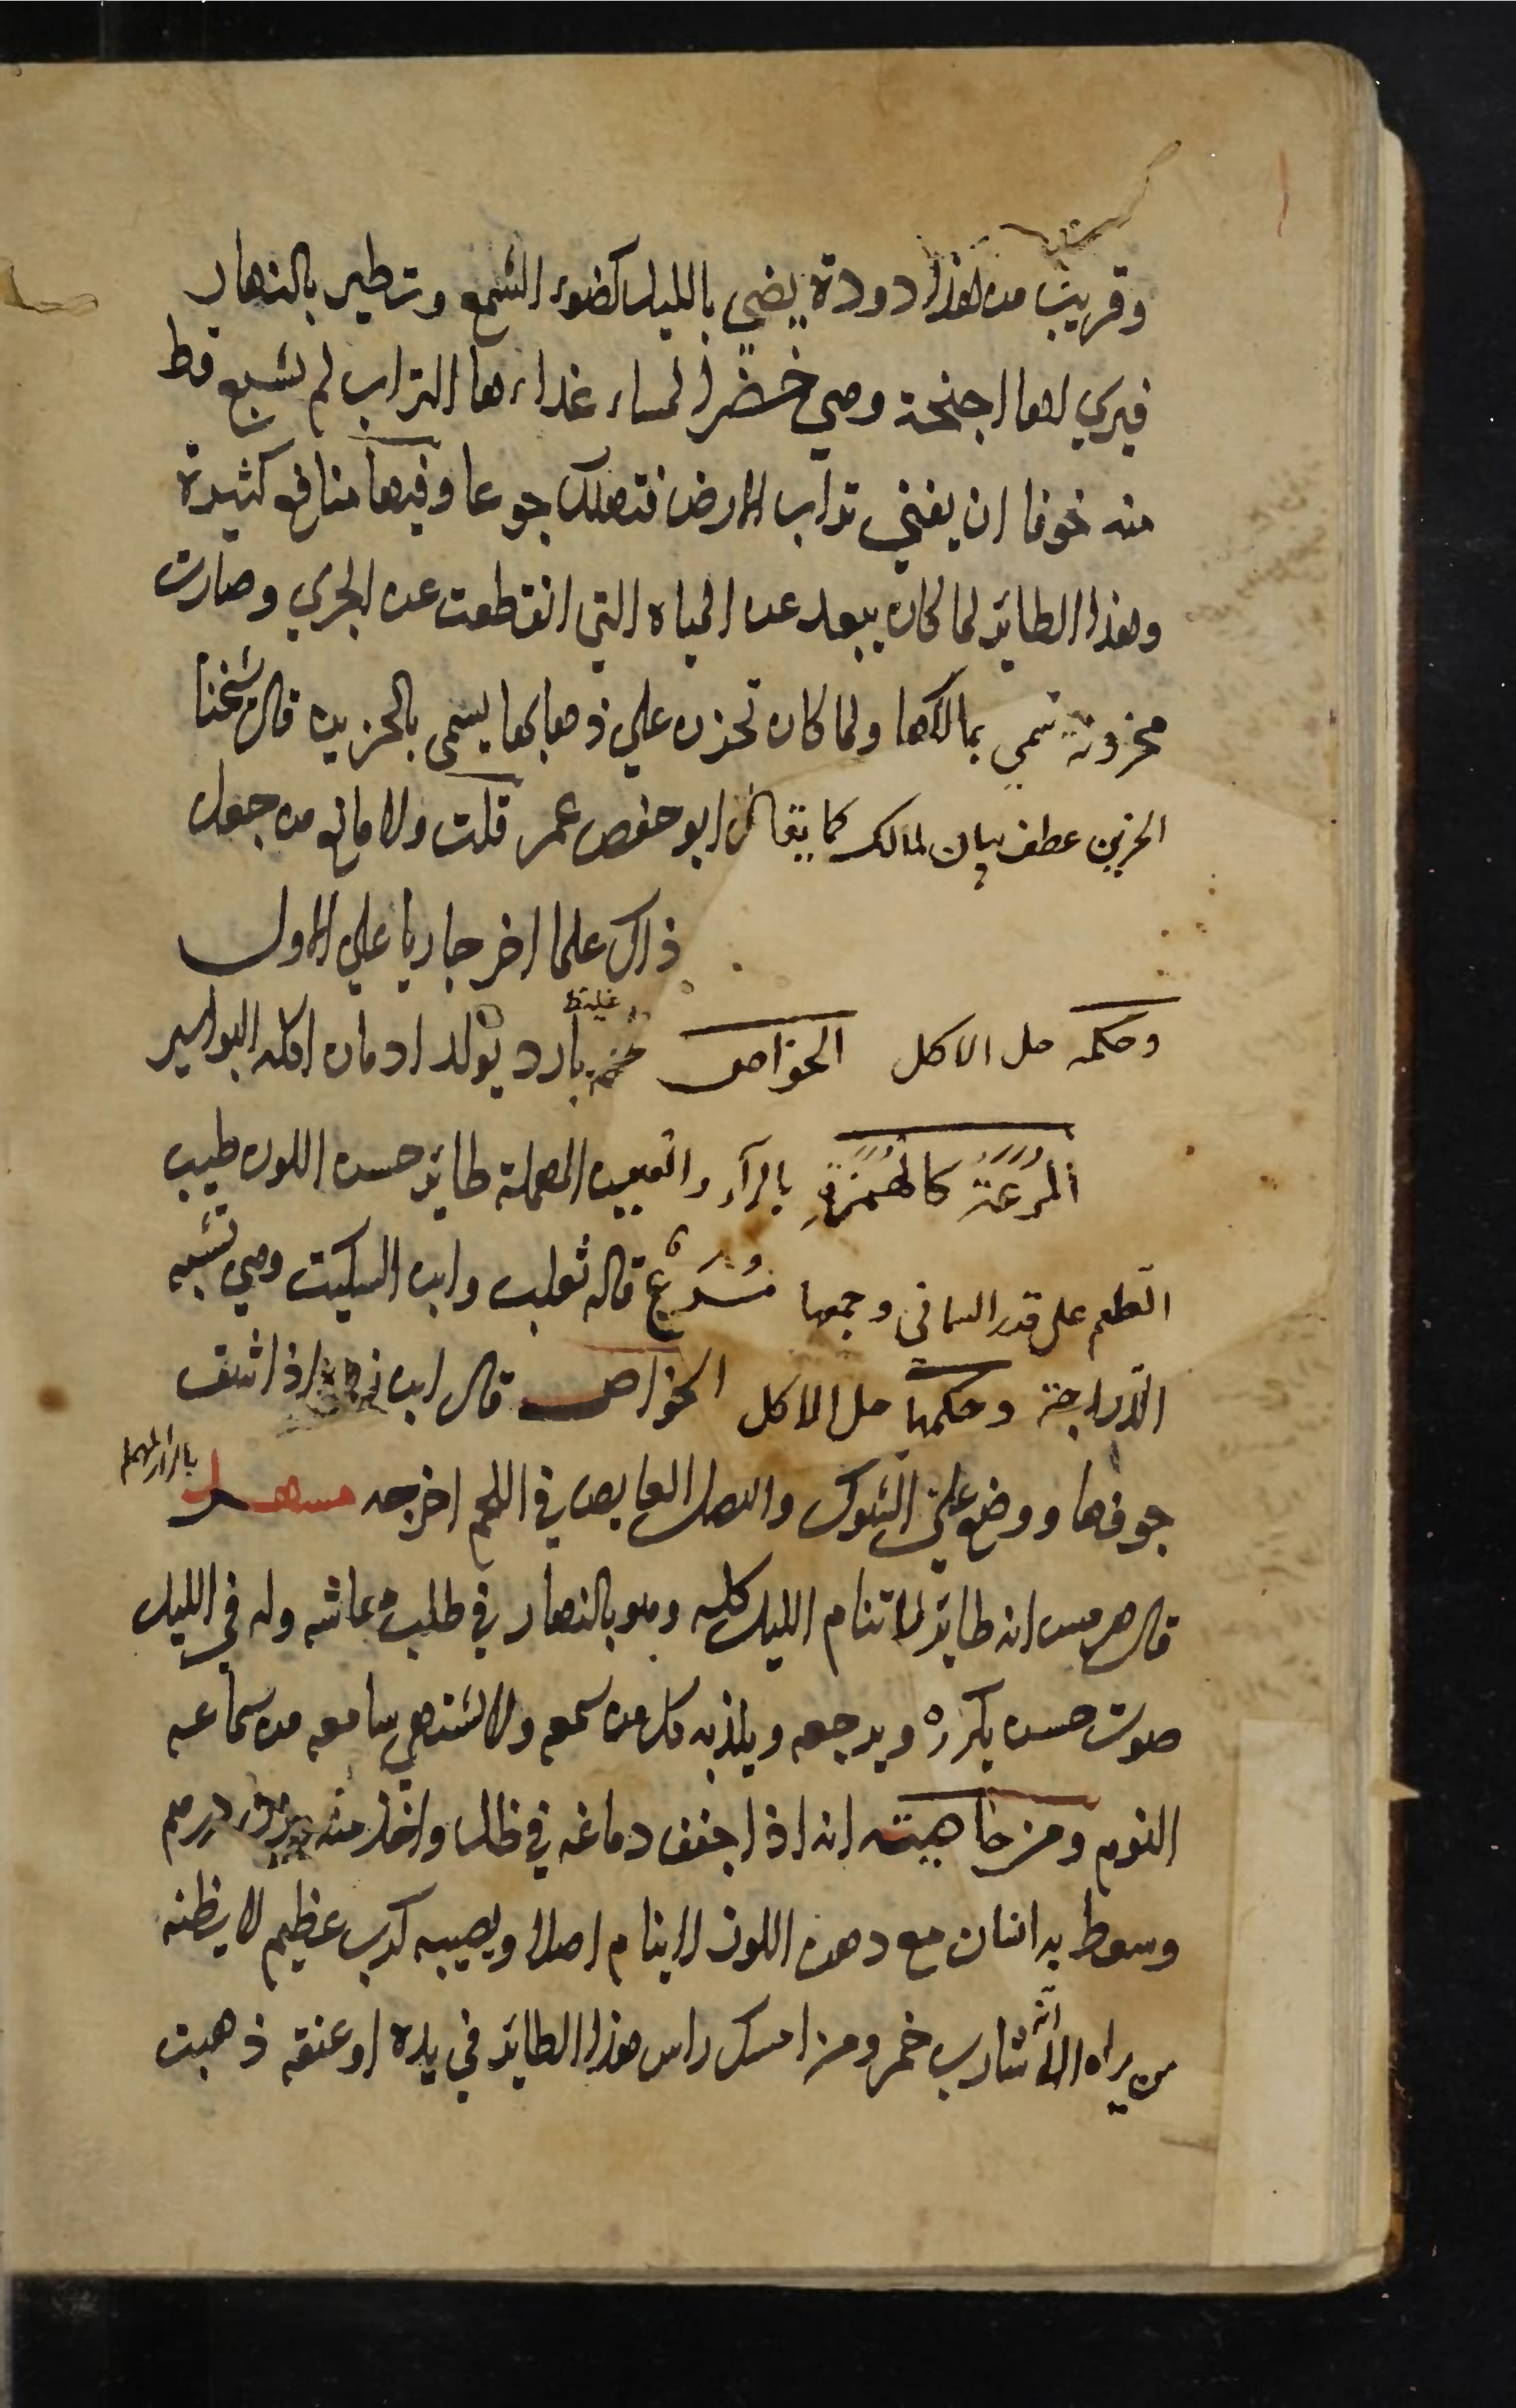 وقريب من هذا دودة يضي بالليل كضوء الشمع وتطير بالنهار
فيري لها اجنحة وهي خضرا لمساء غذاءها التراب لم تشبع قط
منه خوفا ان يفني تراب الارض فتهلك جوعا وفيها منافع كثيرة
وهذا الطائر لما كان يبعد عن المياه التي انقطعت عن الجري وصارت
مخزونة سمي بمالكها ولما كان تحزن علي ذهابها يسمى بالحزين قال شيخنا
الحزين عطف بيان لمالك كما يقال ابو حفص عمر قلت ولا مانع من جعل
ذاك علما اخر جاريا علي الاول
وحكمه حل الاكل الخواص لحمه غليظ بارد يولد ادمان اكله البواسير
المُرَعَة كالهُمَزَةِ بالرآء والعين المهملة طائر حسن اللون طيب
الطعم على قدر السماني وجمعها مُرَع قاله ثعلب وابن السكيت وهي تشبه
الدراجة وحكمها حل الاكل الخواص قال ابن زهر اذا شق
جوفها ووضع علي الشوك والنصل الغايص في اللحم اخرجه مسهر بالراء المهملة
قال هرمس انه طائر لا تنام الليل كله وهو بالنهار في طلب معاشه وله في الليل
صوت حسن يكرره ويرجعه ويلذ به كل من سمعه ولا يشتهي سامعه من سماعه
النوم ومن خاصيته انه اذا جفف دماغه في ظل واخذ منه درهم
وسعط به انسان مع دهن اللوز لا ينام اصلا ويصيبه كرب عظيم لا يظنه
من يراه الا انه شارب خمر ومن امسك راس هذا الطائر في يده او عنقه ذهبت